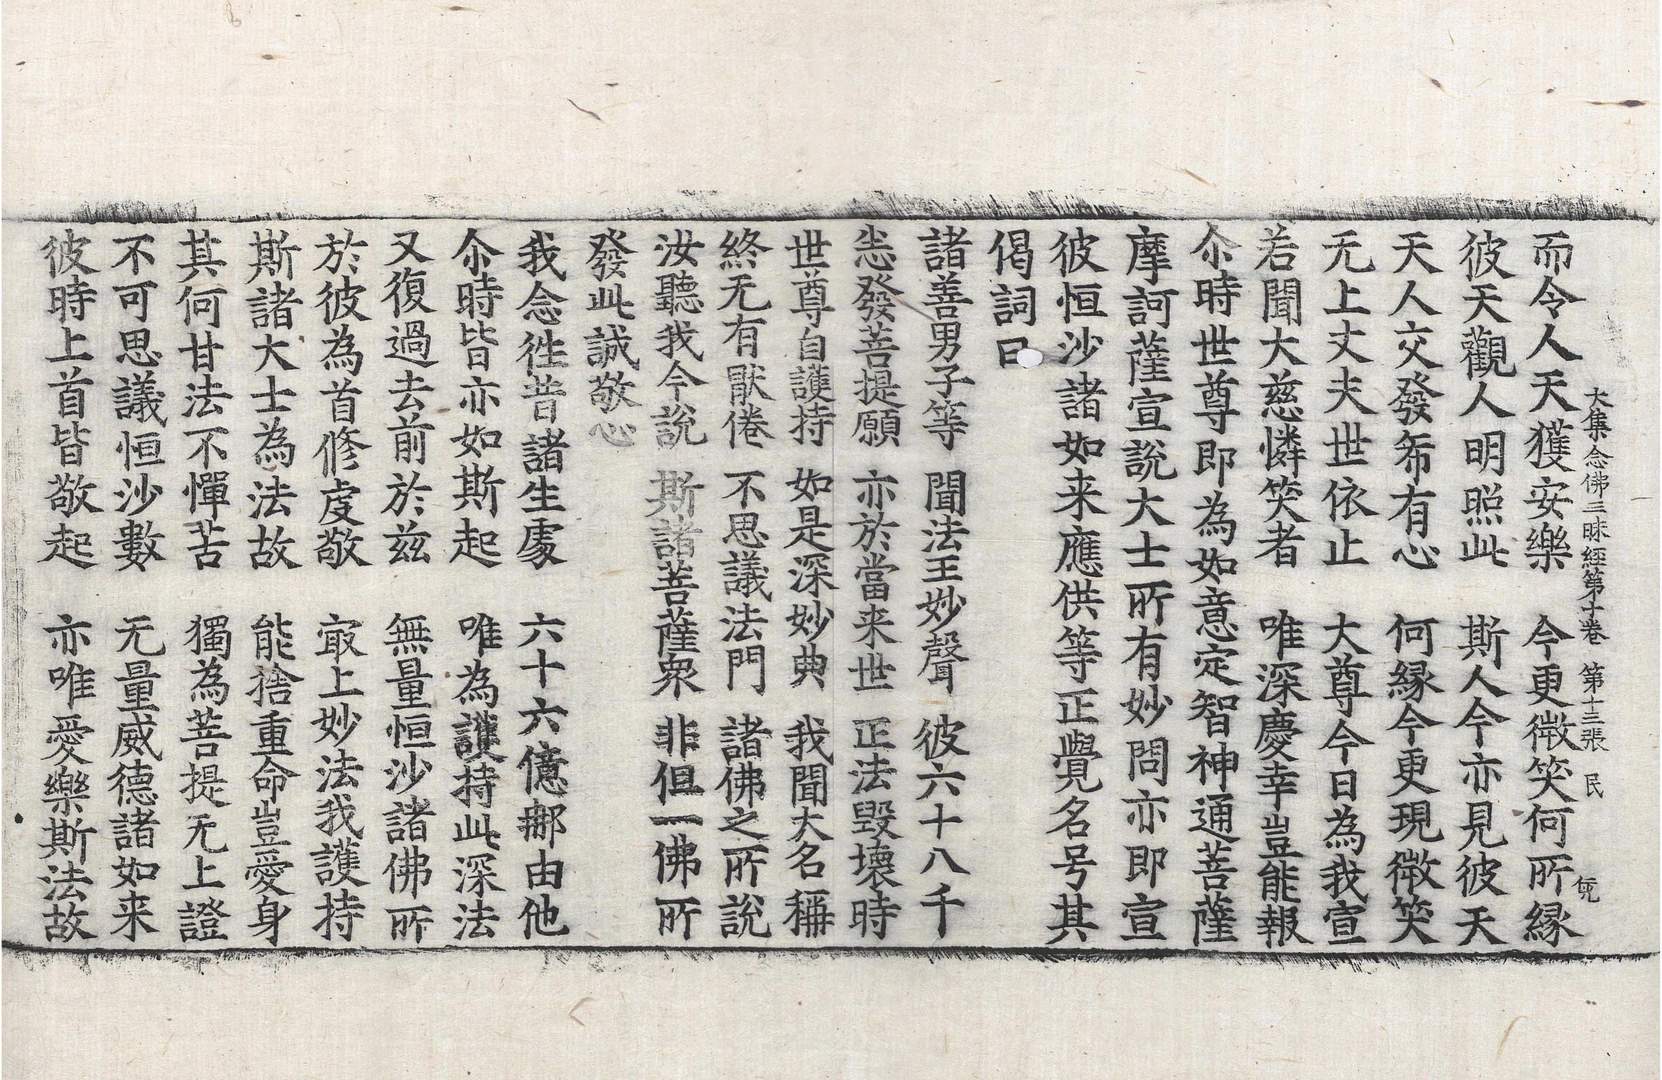 大集念佛三昧經第十卷 第十三張 民
而令人天獲安樂 今更微笑何所緣
彼天觀人明照此 斯人今亦見彼天
天人交發希有心 何緣今更現微笑
无上丈夫世依止 大尊今日為我宣
若聞大慈憐笑者 唯深慶幸豈能報
尒時世尊即為如意定智神通菩薩
摩訶薩宣說大士所有妙問亦即宣
彼恒沙諸如来應供等正覺名号其
偈詞曰
諸善男子等 聞法王妙聲 彼六十八千
悉發菩提願 亦於當来世 正法毀壞時
世尊自護持 如是深妙典 我聞大名稱
終无有厭倦 不思議法門 諸佛之所說
汝聽我今說 斯諸菩薩衆 非但一佛所
發此誠敬心
我念徃昔諸生處 六十六億那由他
尒時皆亦如斯起 唯為護持此深法
又復過去前於兹 無量恒沙諸佛所
於彼為首修虔敬 冣上妙法我護持
斯諸大士為法故 能捨重命豈愛身
其何甘法不憚苦 獨為菩提无上證
不可思議恒沙數 无量威德諸如来
彼時上首皆敬起 亦唯愛樂斯法故